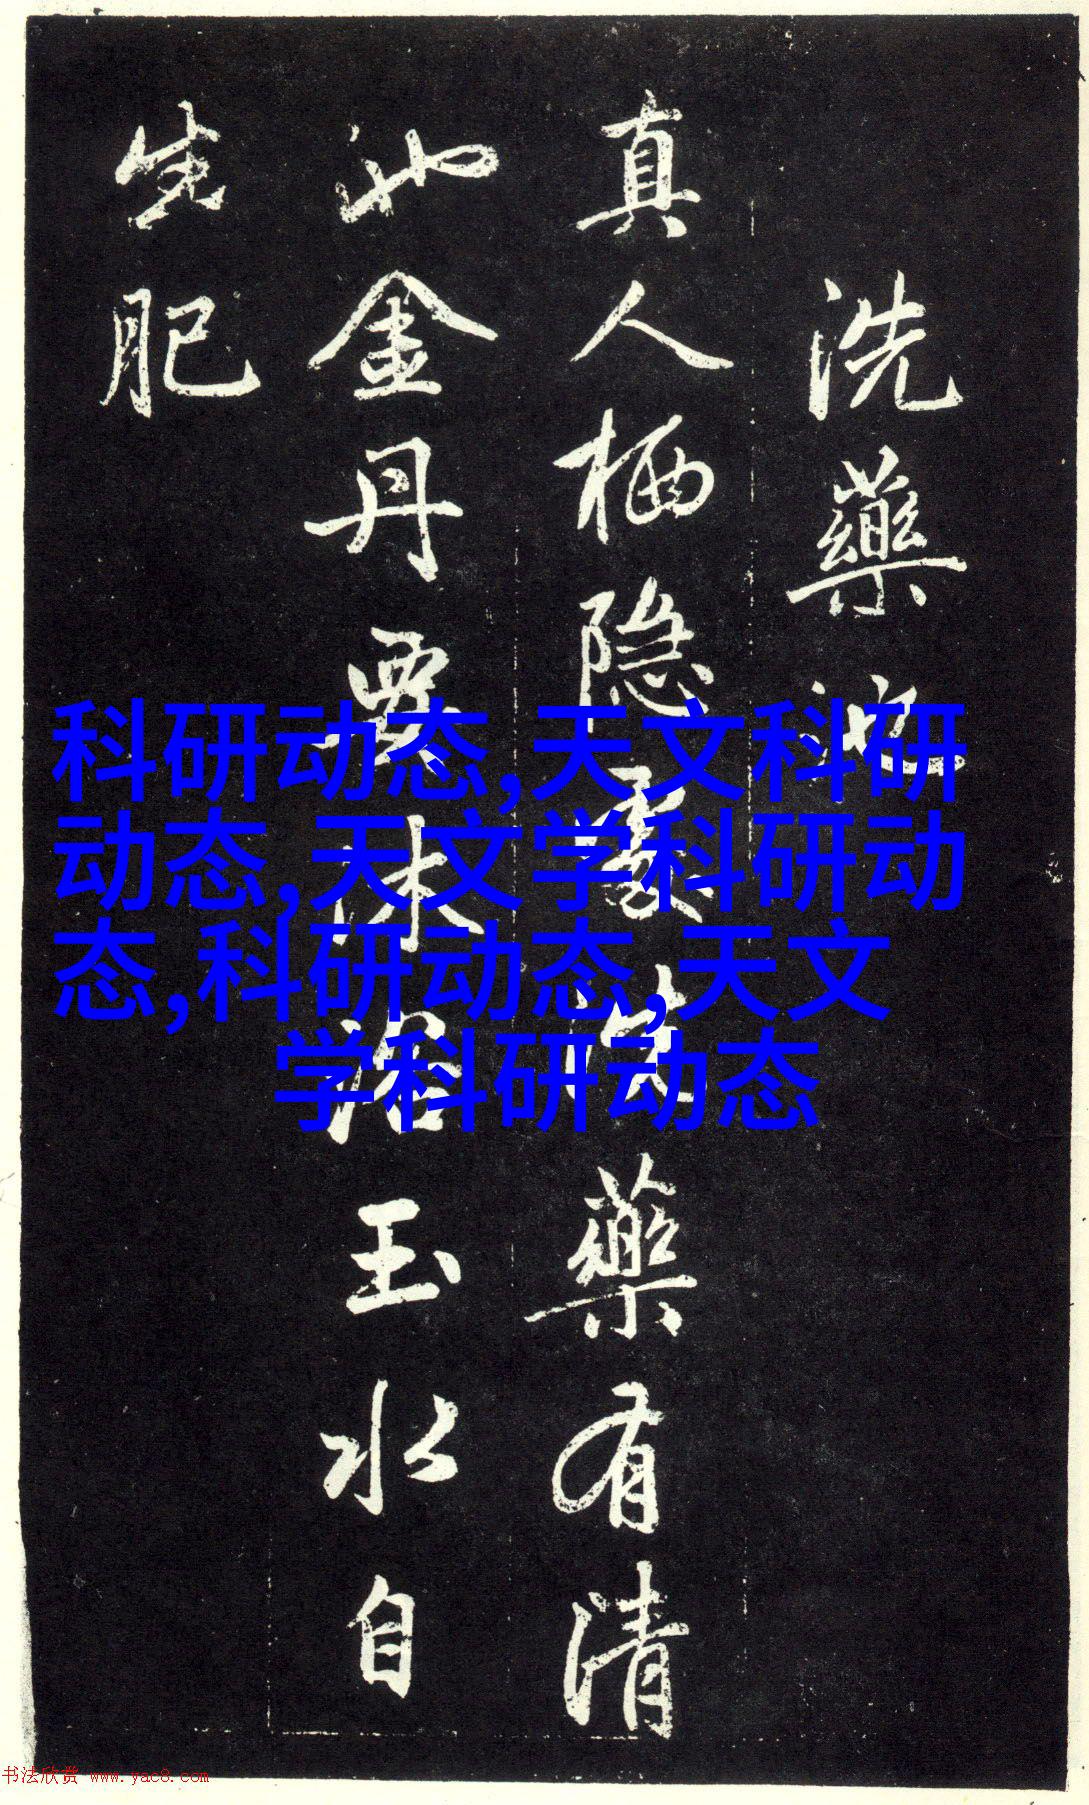 洗藥池
真人栖隐處洗藥有清
池金丹要沐浴玉水自
生肥
科研动态,天文科研
动态,天文学科研动
态,科研动态,天文
学科研动态
书法欣赏 www.yac8.com